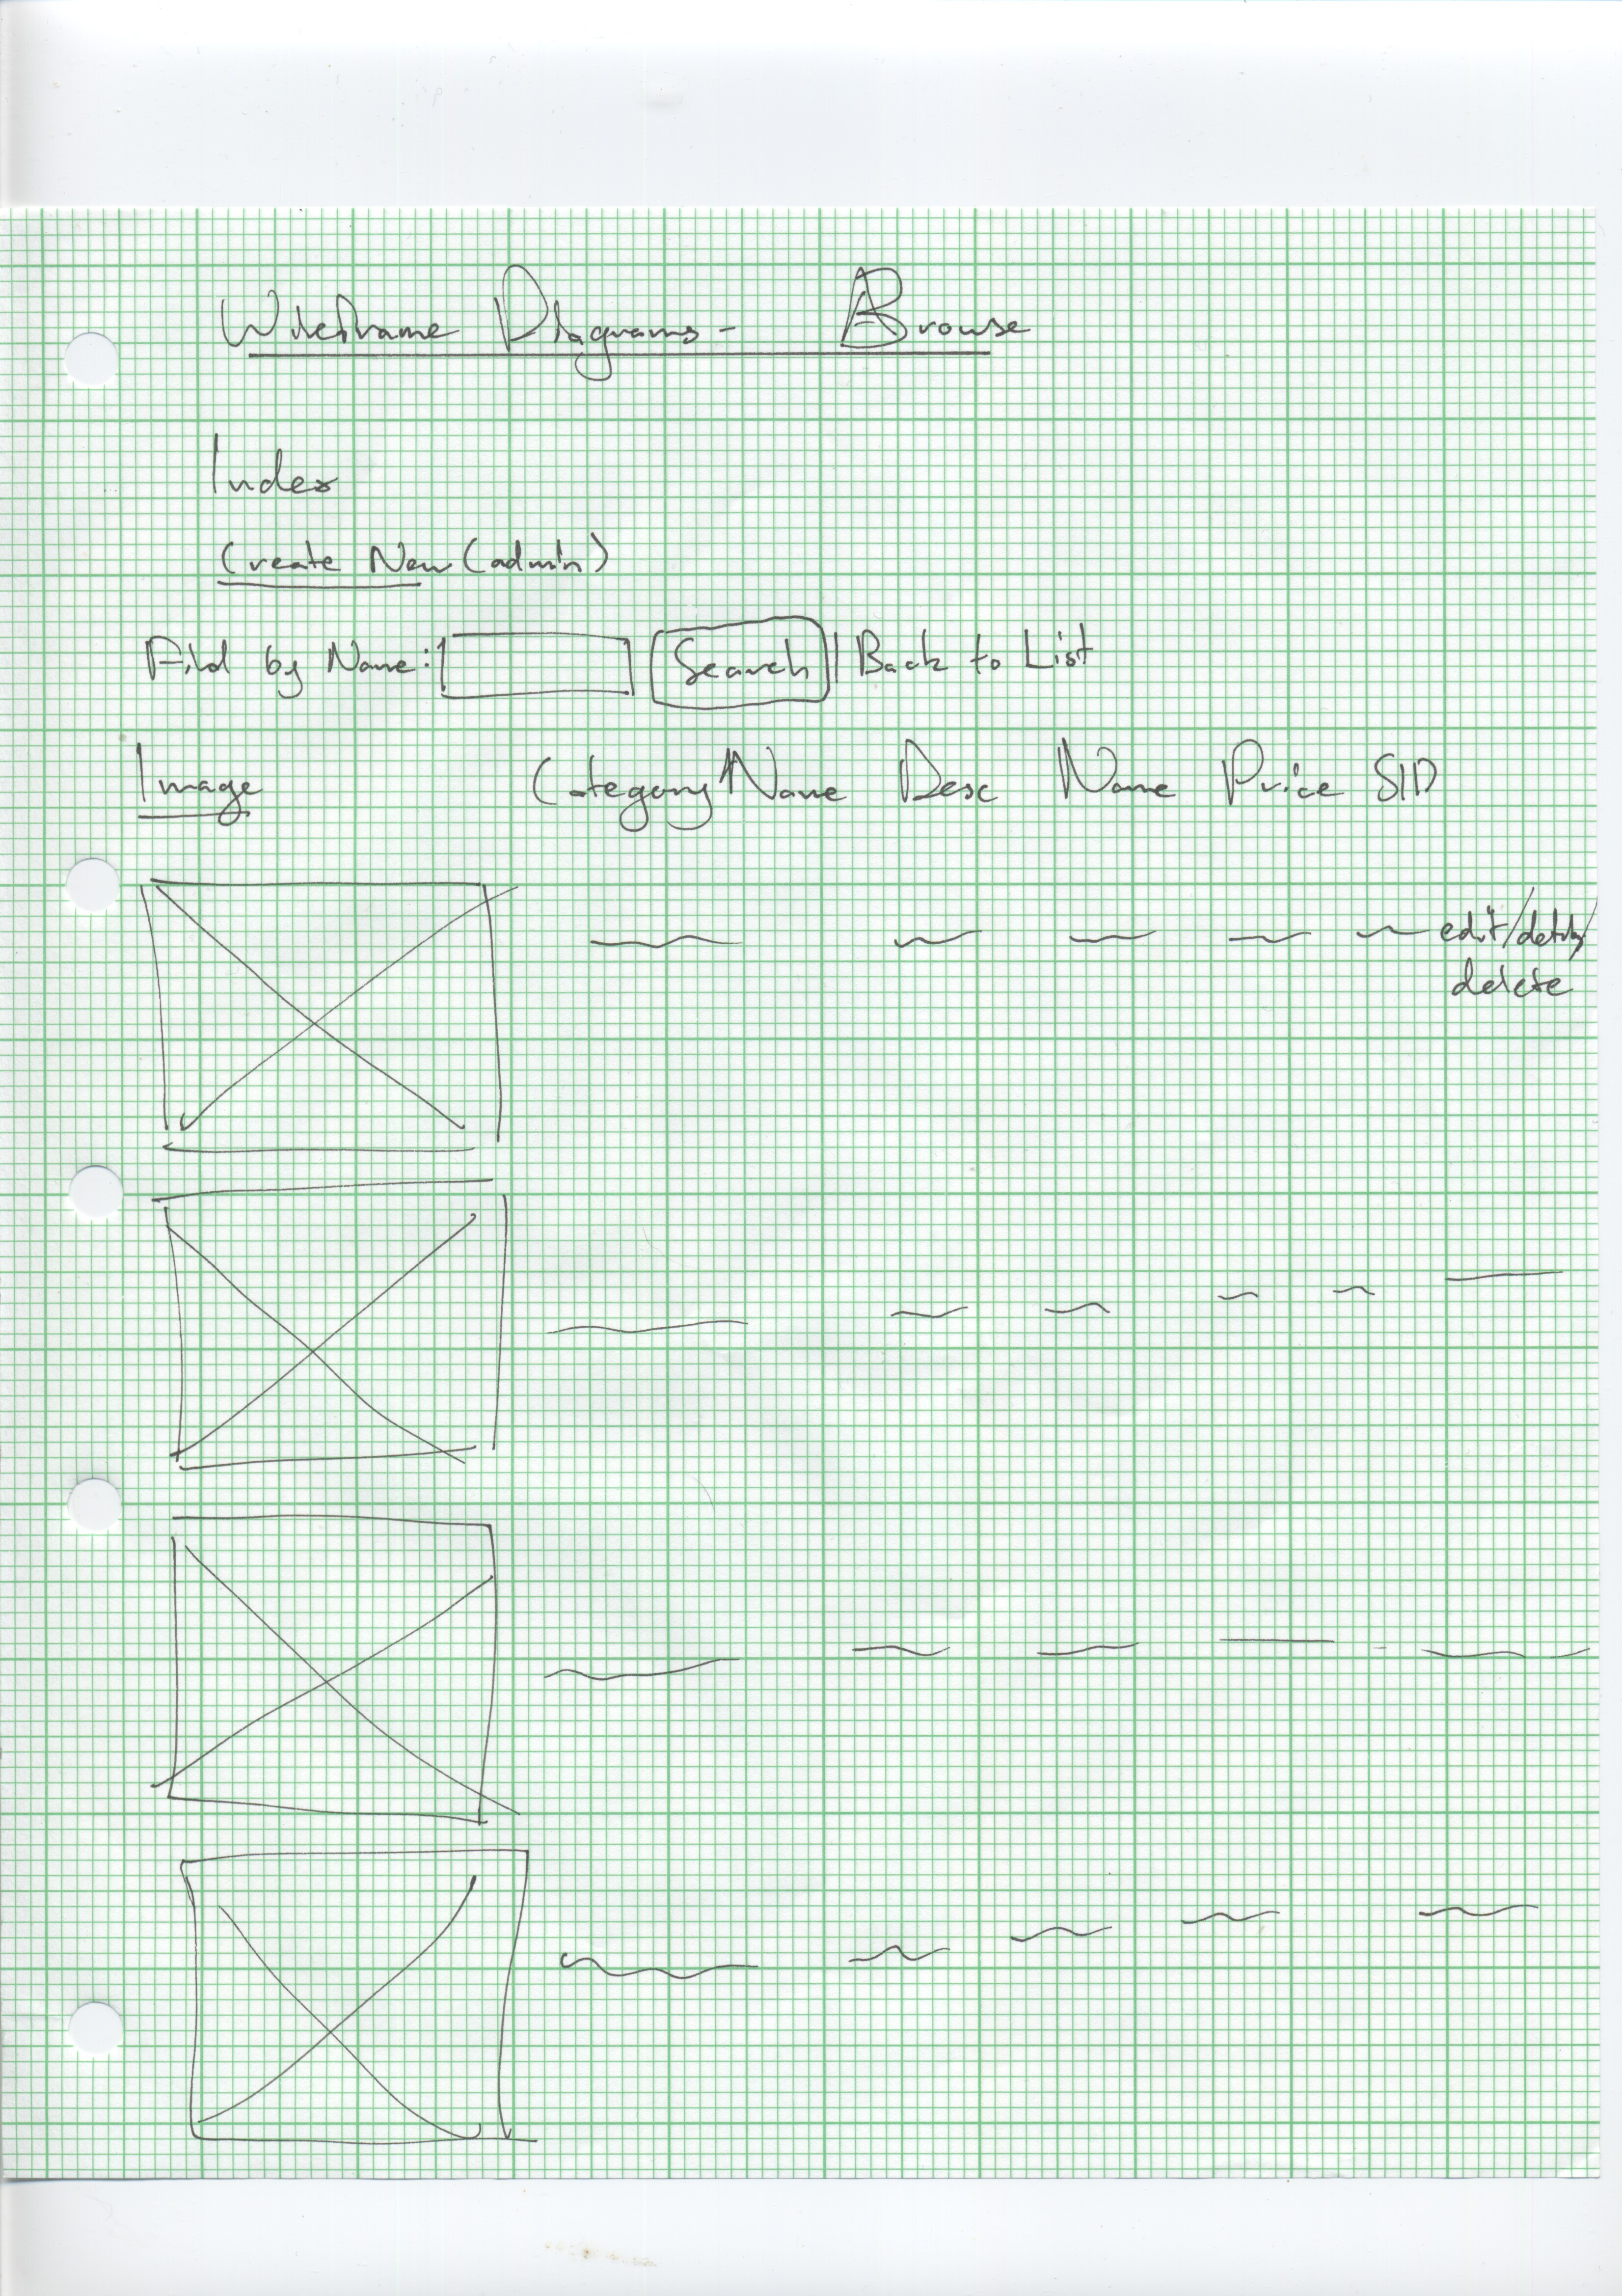 Wireframe Diagrams - Browse
Index
Create New (admin)
Find by Name: Search | Back to List
Image CategoryName Desc Name Price SID
edit/details/
delete